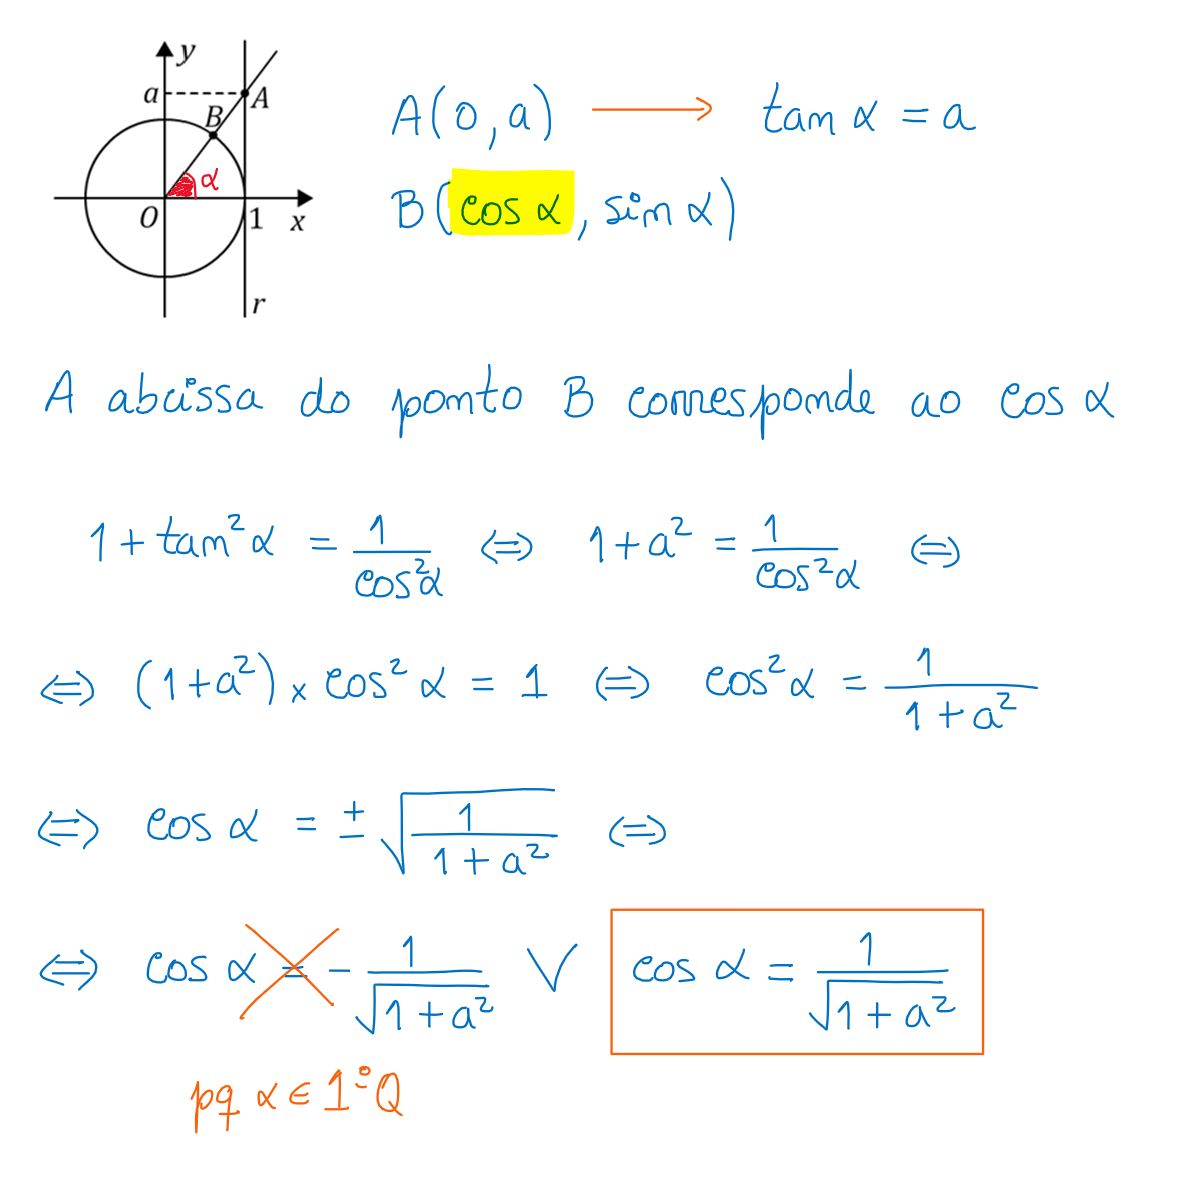 y
a
A
B
α
O
1
x
r
A(0, a) ⟶ tan α = a
B(cos α, sin α)
A abcissa do ponto B corresponde ao cos α
1 + tan² α = 1/cos² α ⇔ 1 + a² = 1/cos² α ⇔
⇔ (1 + a²) × cos² α = 1 ⇔ cos² α = 1/(1 + a²)
⇔ cos α = ± √(1/(1 + a²)) ⇔
⇔ cos α = - 1/√(1 + a²) ∨ cos α = 1/√(1 + a²)
pq α ∈ 1º Q